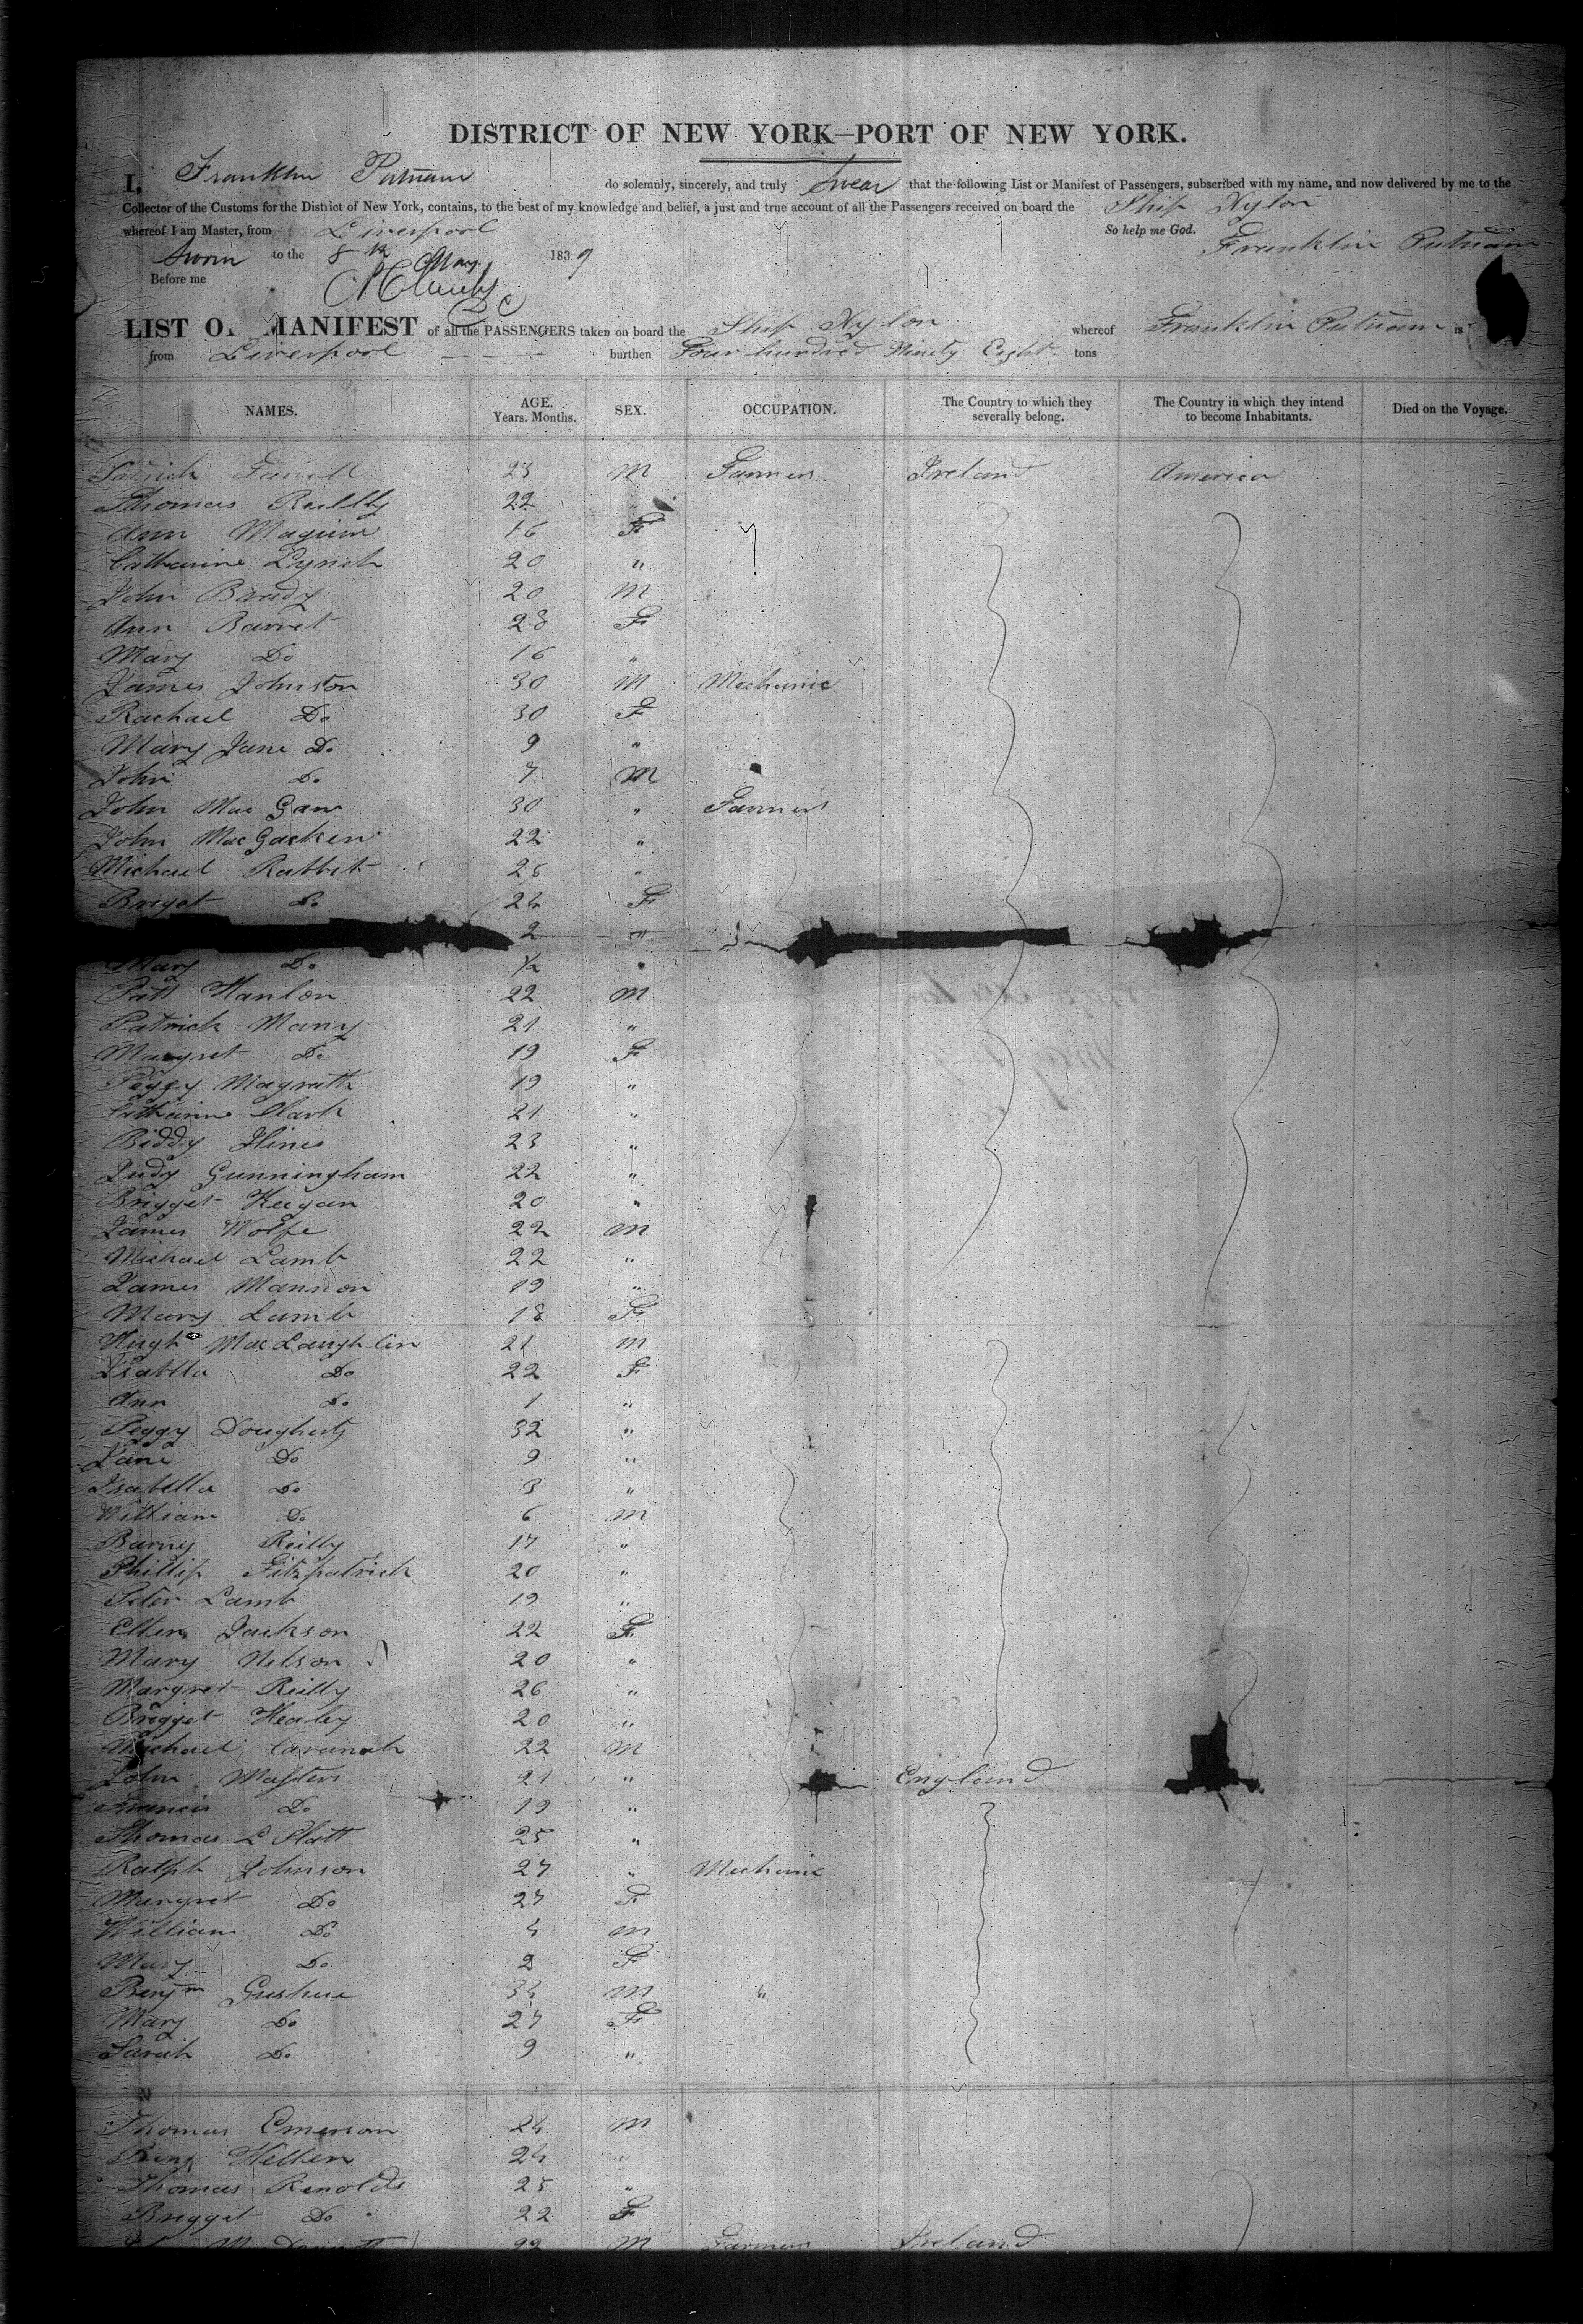 DISTRICT OF NEW YORK—PORT OF NEW YORK.
I, Franklin Putnam do solemnly, sincerely, and truly Swear that the following List or Manifest of Passengers, subscribed with my name, and now delivered by me to the
Collector of the Customs for the District of New York, contains, to the best of my knowledge and belief, a just and true account of all the Passengers received on board the Ship Hylon
whereof I am Master, from Liverpool So help me God. Franklin Putnam
Sworn to the 8th May 1839
Before me
LIST O MANIFEST of all the PASSENGERS taken on board the Ship Hylon whereof Franklin Putnam is
from Liverpool burthen Four hundred Ninety Eight tons
NAMES. AGE. Years. Months. SEX. OCCUPATION. The Country to which they severally belong. The Country in which they intend to become Inhabitants. Died on the Voyage.
Patrick Farrell 23 M Farmers Ireland America
Thomas Reilly 22 "
Ann Maguire 16 F
Catharine Lynch 20 "
John Brady 20 M
Ann Barret 28 F
Mary Do 16 "
James Johnston 30 M Mechanic
Rachael Do 30 F
Mary Jane Do 9 "
John Do 7 M
John Mac Gaw 30 " Farmers
John Mac Gacken 22 "
Michael Rabbit 28 "
Briget Do 24 F
2 "
Mary Do ½ "
Patt Hanlon 22 M
Patrick Many 21 "
Margret Do 19 F
Peggy Magrath 19 "
Catharine Clark 21 "
Biddy Hines 23 "
Judy Gunningham 22 "
Brigget Keegan 20 "
James Wolfe 22 M
Michael Lamb 22 "
James Mannion 19 "
Mary Lamb 18 F
Hugh Mac Laughlin 21 M
Isabella Do 22 F
Ann Do 1 "
Peggy Dougherty 32 "
Jane Do 9 "
Isabella Do 3 "
William Do 6 M
Barny Reilly 17 "
Phillip Fitzpatrick 20 "
Peter Lamb 19 "
Ellen Jackson 22 F
Mary Nelson 20 "
Margret Reilly 26 "
Brigget Healey 20 "
Michael Cavanah 22 M
John Masters 21 " England
Francis Do 19 "
Thomas L Platt 25 "
Ralph Johnson 27 " Mechanic
Margret Do 27 F
William Do 4 M
Mary Do 2 F
Benjm Gushue 34 M "
Mary Do 27 F
Sarah Do 9 "
Thomas Emerson 24 M
Benj Hellen 24 "
Thomas Renolds 25 "
Brigget Do 22 F
22 M Farmers Ireland